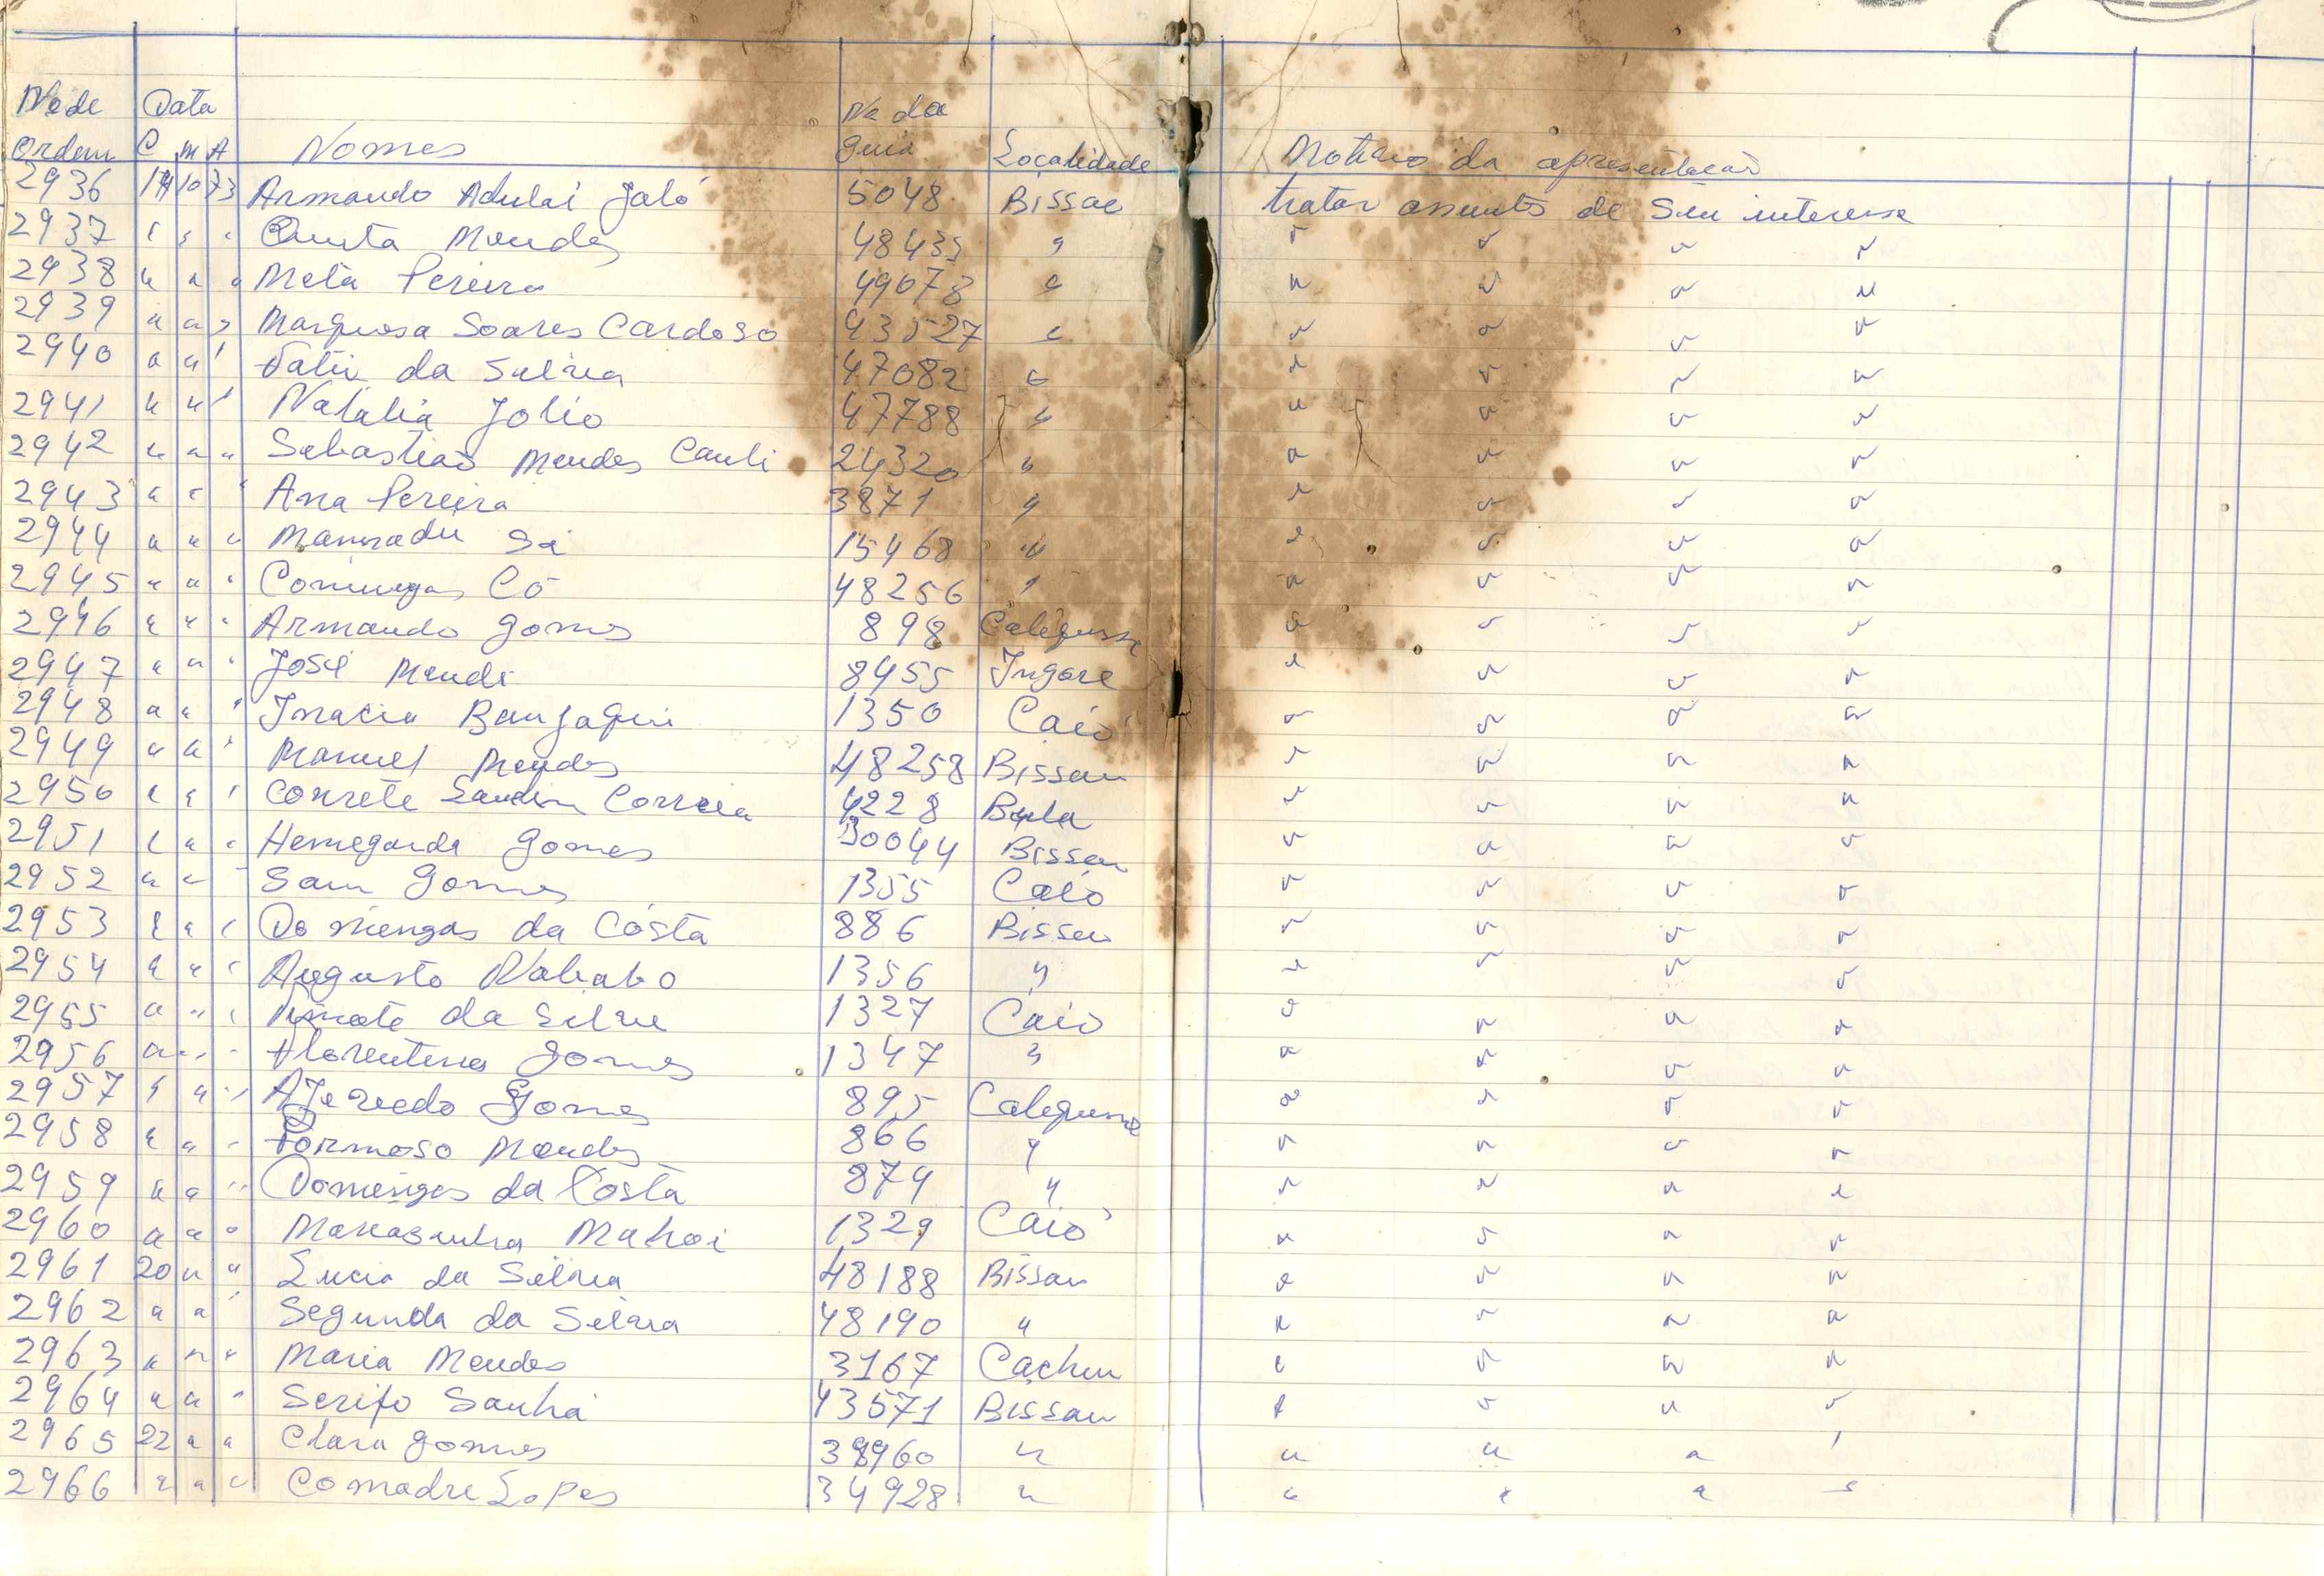 No de Data No da
Ordem D M A Nomes Guia Localidade Motivo da apresentação
2936 19 10 73 Armando Adulai Jaló 5048 Bissau tratar assuntos de Seu interesse
2937 " " " Quinta Mendes 48435 " " " " "
2938 " " " Meta Pereira 49678 " " " " "
2939 " " " Marquesa Soares Cardoso 43527 " " " " "
2940 " " " da Silva 47082 " " " " "
2941 " " " Natalia Jolio 47788 " " " " "
2942 " " " Sebastião Mendes Cauli 24320 " " " " "
2943 " " " Ana Pereira 3871 " " " " "
2944 " " " Mamadu Sá 15468 " " " " "
2945 " " " Domingas Có 48256 " " " " "
2946 " " " Armando Gomes 898 Calequisse " " " "
2947 " " " José Mendi 8455 Ingore " " " "
2948 " " " Inacia Banjaqui 1350 Caió " " " "
2949 " " " Manuel Mendes 48258 Bissau " " " "
2950 " " " Correia 4228 Bula " " " "
2951 " " " Hemegarda Gomes 30044 Bissau " " " "
2952 " " " Sam Gomes 1355 Caió " " " "
2953 " " " Domingas da Costa 886 Bissau " " " "
2954 " " " Augusto Nababo 1356 " " " " "
2955 " " " da Silva 1327 Caió " " " "
2956 " " " Florentina Gomes 1347 " " " " "
2957 " " " Gomes 895 Calequisse " " " "
2958 " " " Formoso Mendes 866 " " " " "
2959 " " " Domingas da Costa 879 " " " " "
2960 " " " Mahoi 1329 Caió " " " "
2961 20 " " Lucia da Silva 48188 Bissau " " " "
2962 " " " Segunda da Silva 48190 " " " " "
2963 " " " Maria Mendes 3167 Cacheu " " " "
2964 " " " Serifo Sanhá 43571 Bissau " " " "
2965 22 " " Clara Gomes 38960 " " " " "
2966 " " " Comadre Lopes 34928 " " " " "